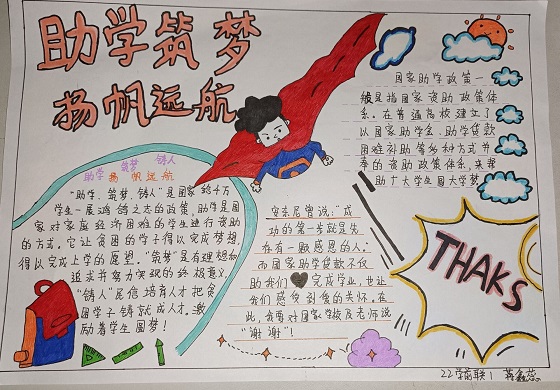 助学筑梦
扬帆远航
助学 筑梦 铸人
扬帆远航
"助学、筑梦、铸人"是国家给4万
学生一展鸿鹄之志的政策,助学是国
家对家庭经济困难的学生进行资助
的方式。它让贫困的学子得以完成梦想,
得以完成上学的愿望。"筑梦"是有理想和
追求并努力实现的终极意义,
"铸人"是信培育人才把贫
困学子铸就成人才。激
励着学生圆梦!
国家助学政策一
般是指国家资助政策体
系。在普通高校建立了
以国家助学金、助学贷款
困难补助等多种方式并
举的资助政策体系,来帮
助广大学生圆大学梦
安东尼曾说:"成
功的第一步就是先
存有一颗感恩的人."
而国家助学贷款不仅
助我们完成学业,也让
我们感受到爱的关怀。在
此,我要对国家学校及老师说
"谢谢"!
THAKS
22学前联1